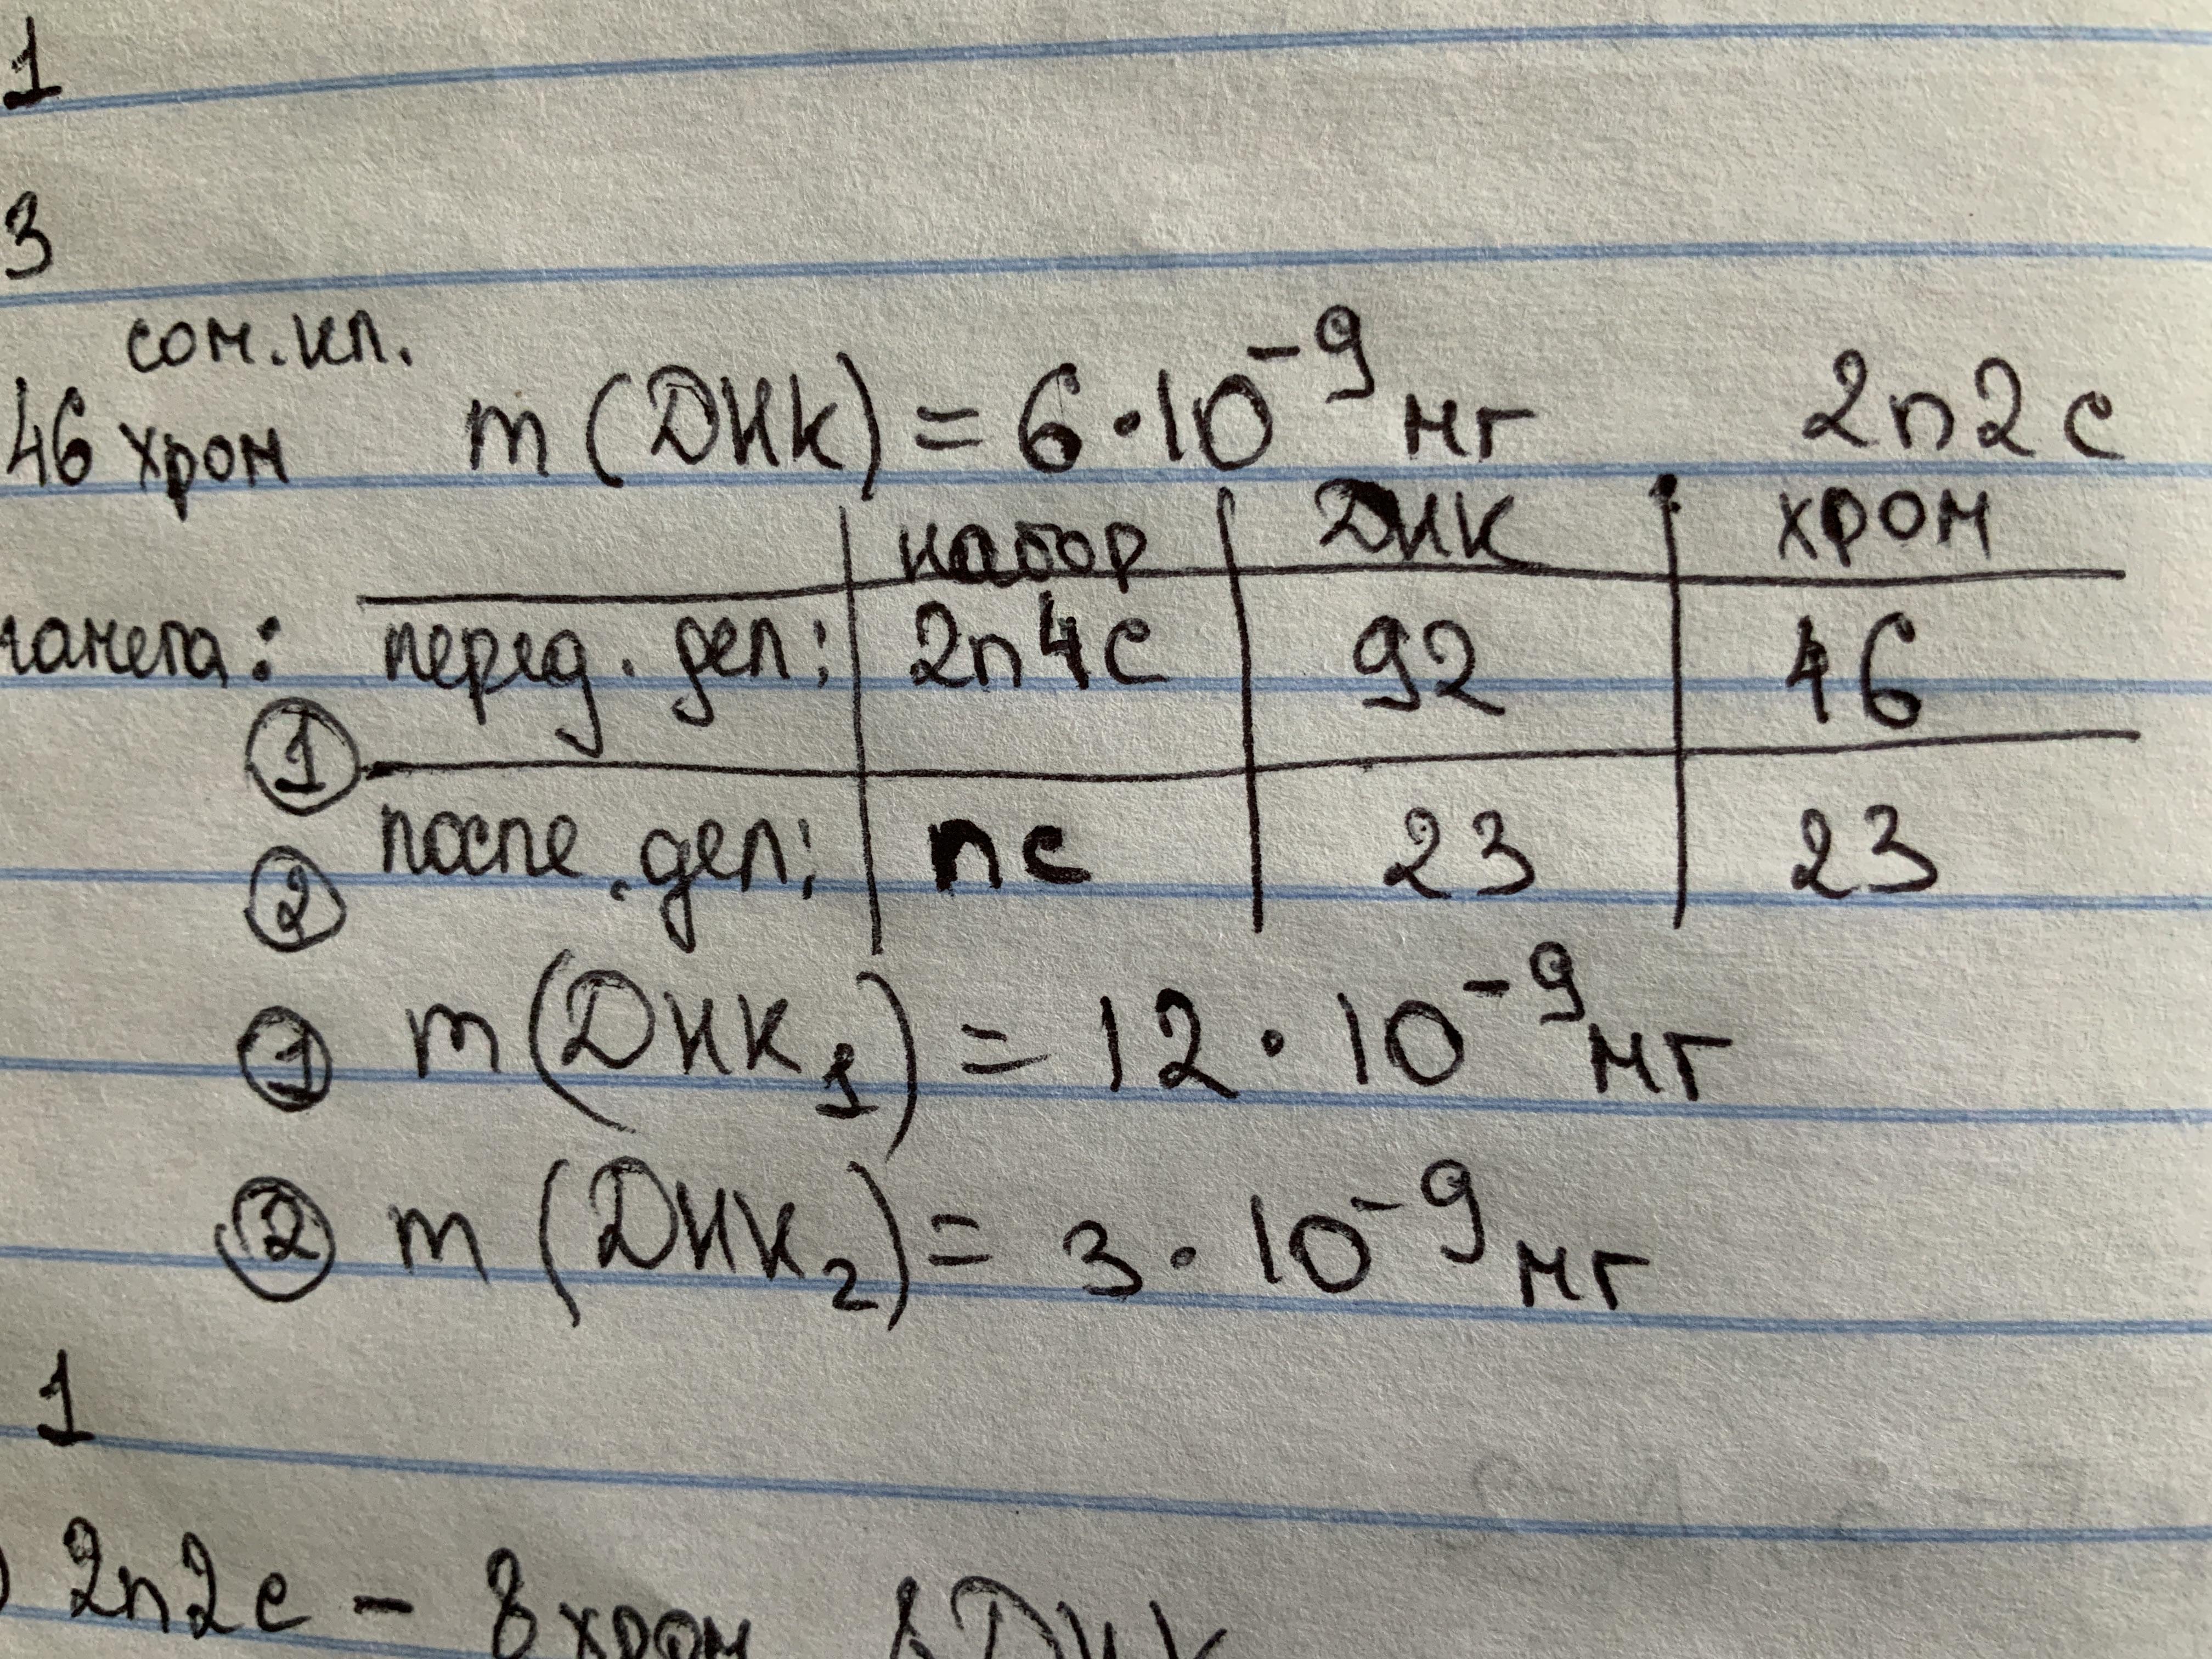 1
3
сом.кл.
46 хром m (ДНК) = 6·10⁻⁹ мг 2n2c
набор ДНК хром
гамета: перед. дел: 2n4c 92 46
①
после. дел: nc 23 23
②
① m (ДНК₁) = 12 · 10⁻⁹ мг
② m (ДНК₂) = 3 · 10⁻⁹ мг
1
) 2n2c – 8 хром 8 ДНК